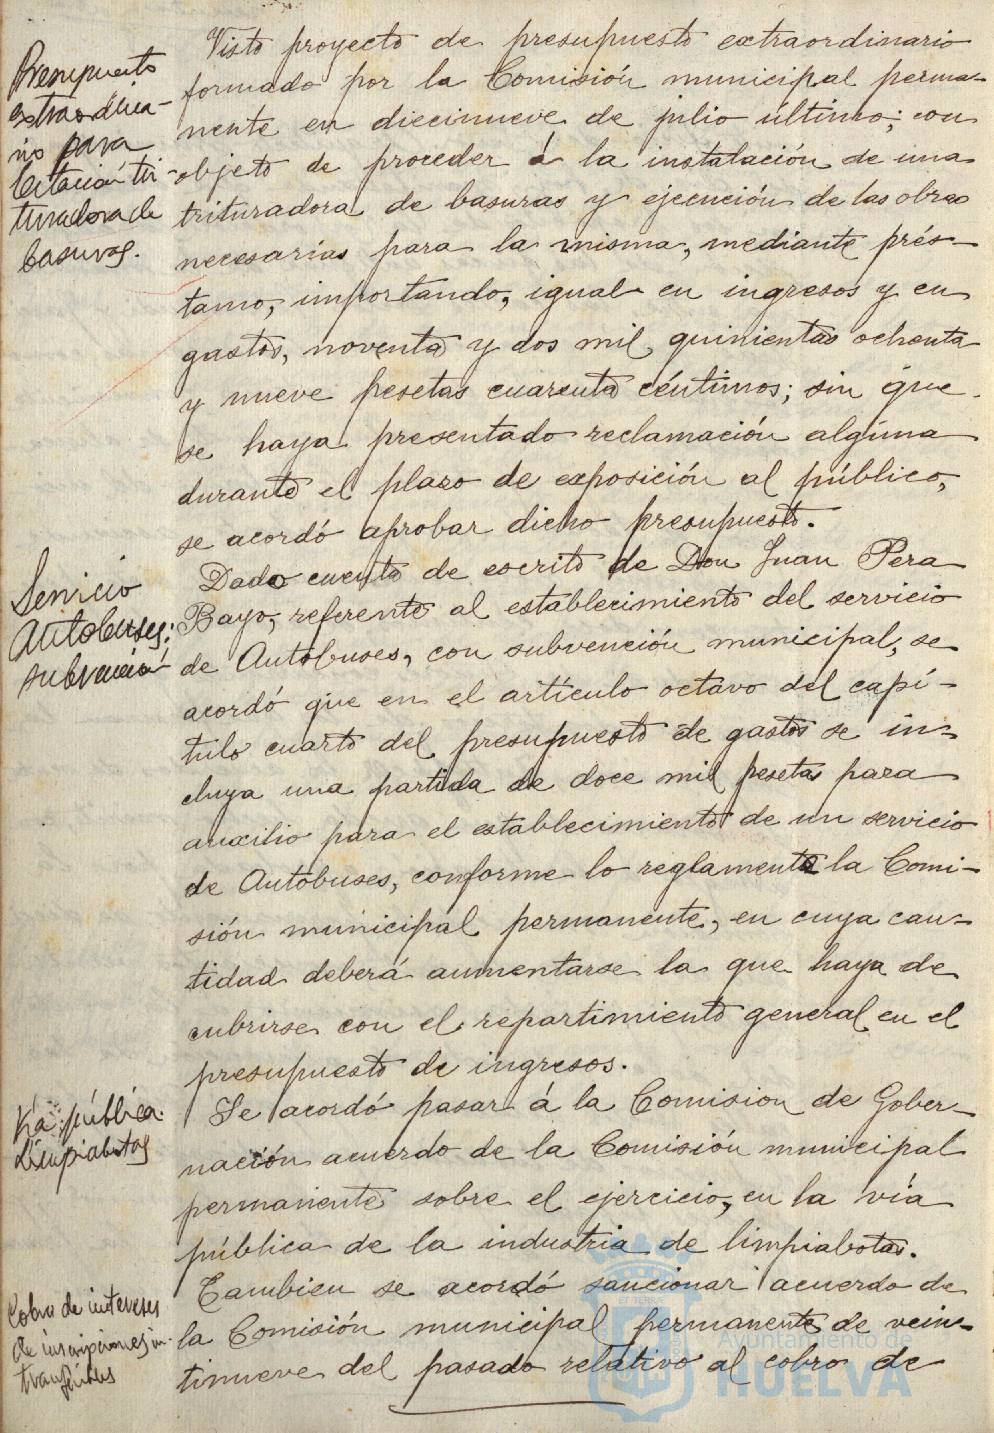 Presupuesto
extraordina-
rio para
licitación tri-
turadora de
basuras.
Visto proyecto de presupuesto extraordinario
formado por la Comisión municipal perma-
nente en diecinueve de julio último; con
objeto de proceder á la instalación de una
trituradora de basuras y ejecución de las obras
necesarias para la misma, mediante prés-
tamo, importando, igual en ingresos y en
gastos, noventa y dos mil quinientas ochenta
y nueve pesetas cuarenta céntimos; sin que
se haya presentado reclamación alguna
durante el plazo de exposición al público,
se acordó aprobar dicho presupuesto.
Servicio
Autobuses:
subvención
Dada cuenta de escrito de Don Juan Pera
Bayo, referente al establecimiento del servicio
de Autobuses, con subvención municipal, se
acordó que en el artículo octavo del capí-
tulo cuarto del presupuesto de gastos se in-
cluya una partida de doce mil pesetas para
auxilio para el establecimiento de un servicio
de Autobuses, conforme lo reglamente la Comi-
sión municipal permanente, en cuya can-
tidad deberá aumentarse la que haya de
cubrirse con el repartimiento general en el
presupuesto de ingresos.
Vía pública.
Limpiabotas
Se acordó pasar á la Comision de Gober-
nación acuerdo de la Comisión municipal
permanente sobre el ejercicio, en la vía
pública de la industria de limpiabotas.
Cobro de intereses
de inscripciones in-
transferibles
Tambien se acordó sancionar acuerdo de
la Comisión municipal permanente de vein-
tinueve del pasado relativo al cobro de
Ayuntamiento de
HUELVA